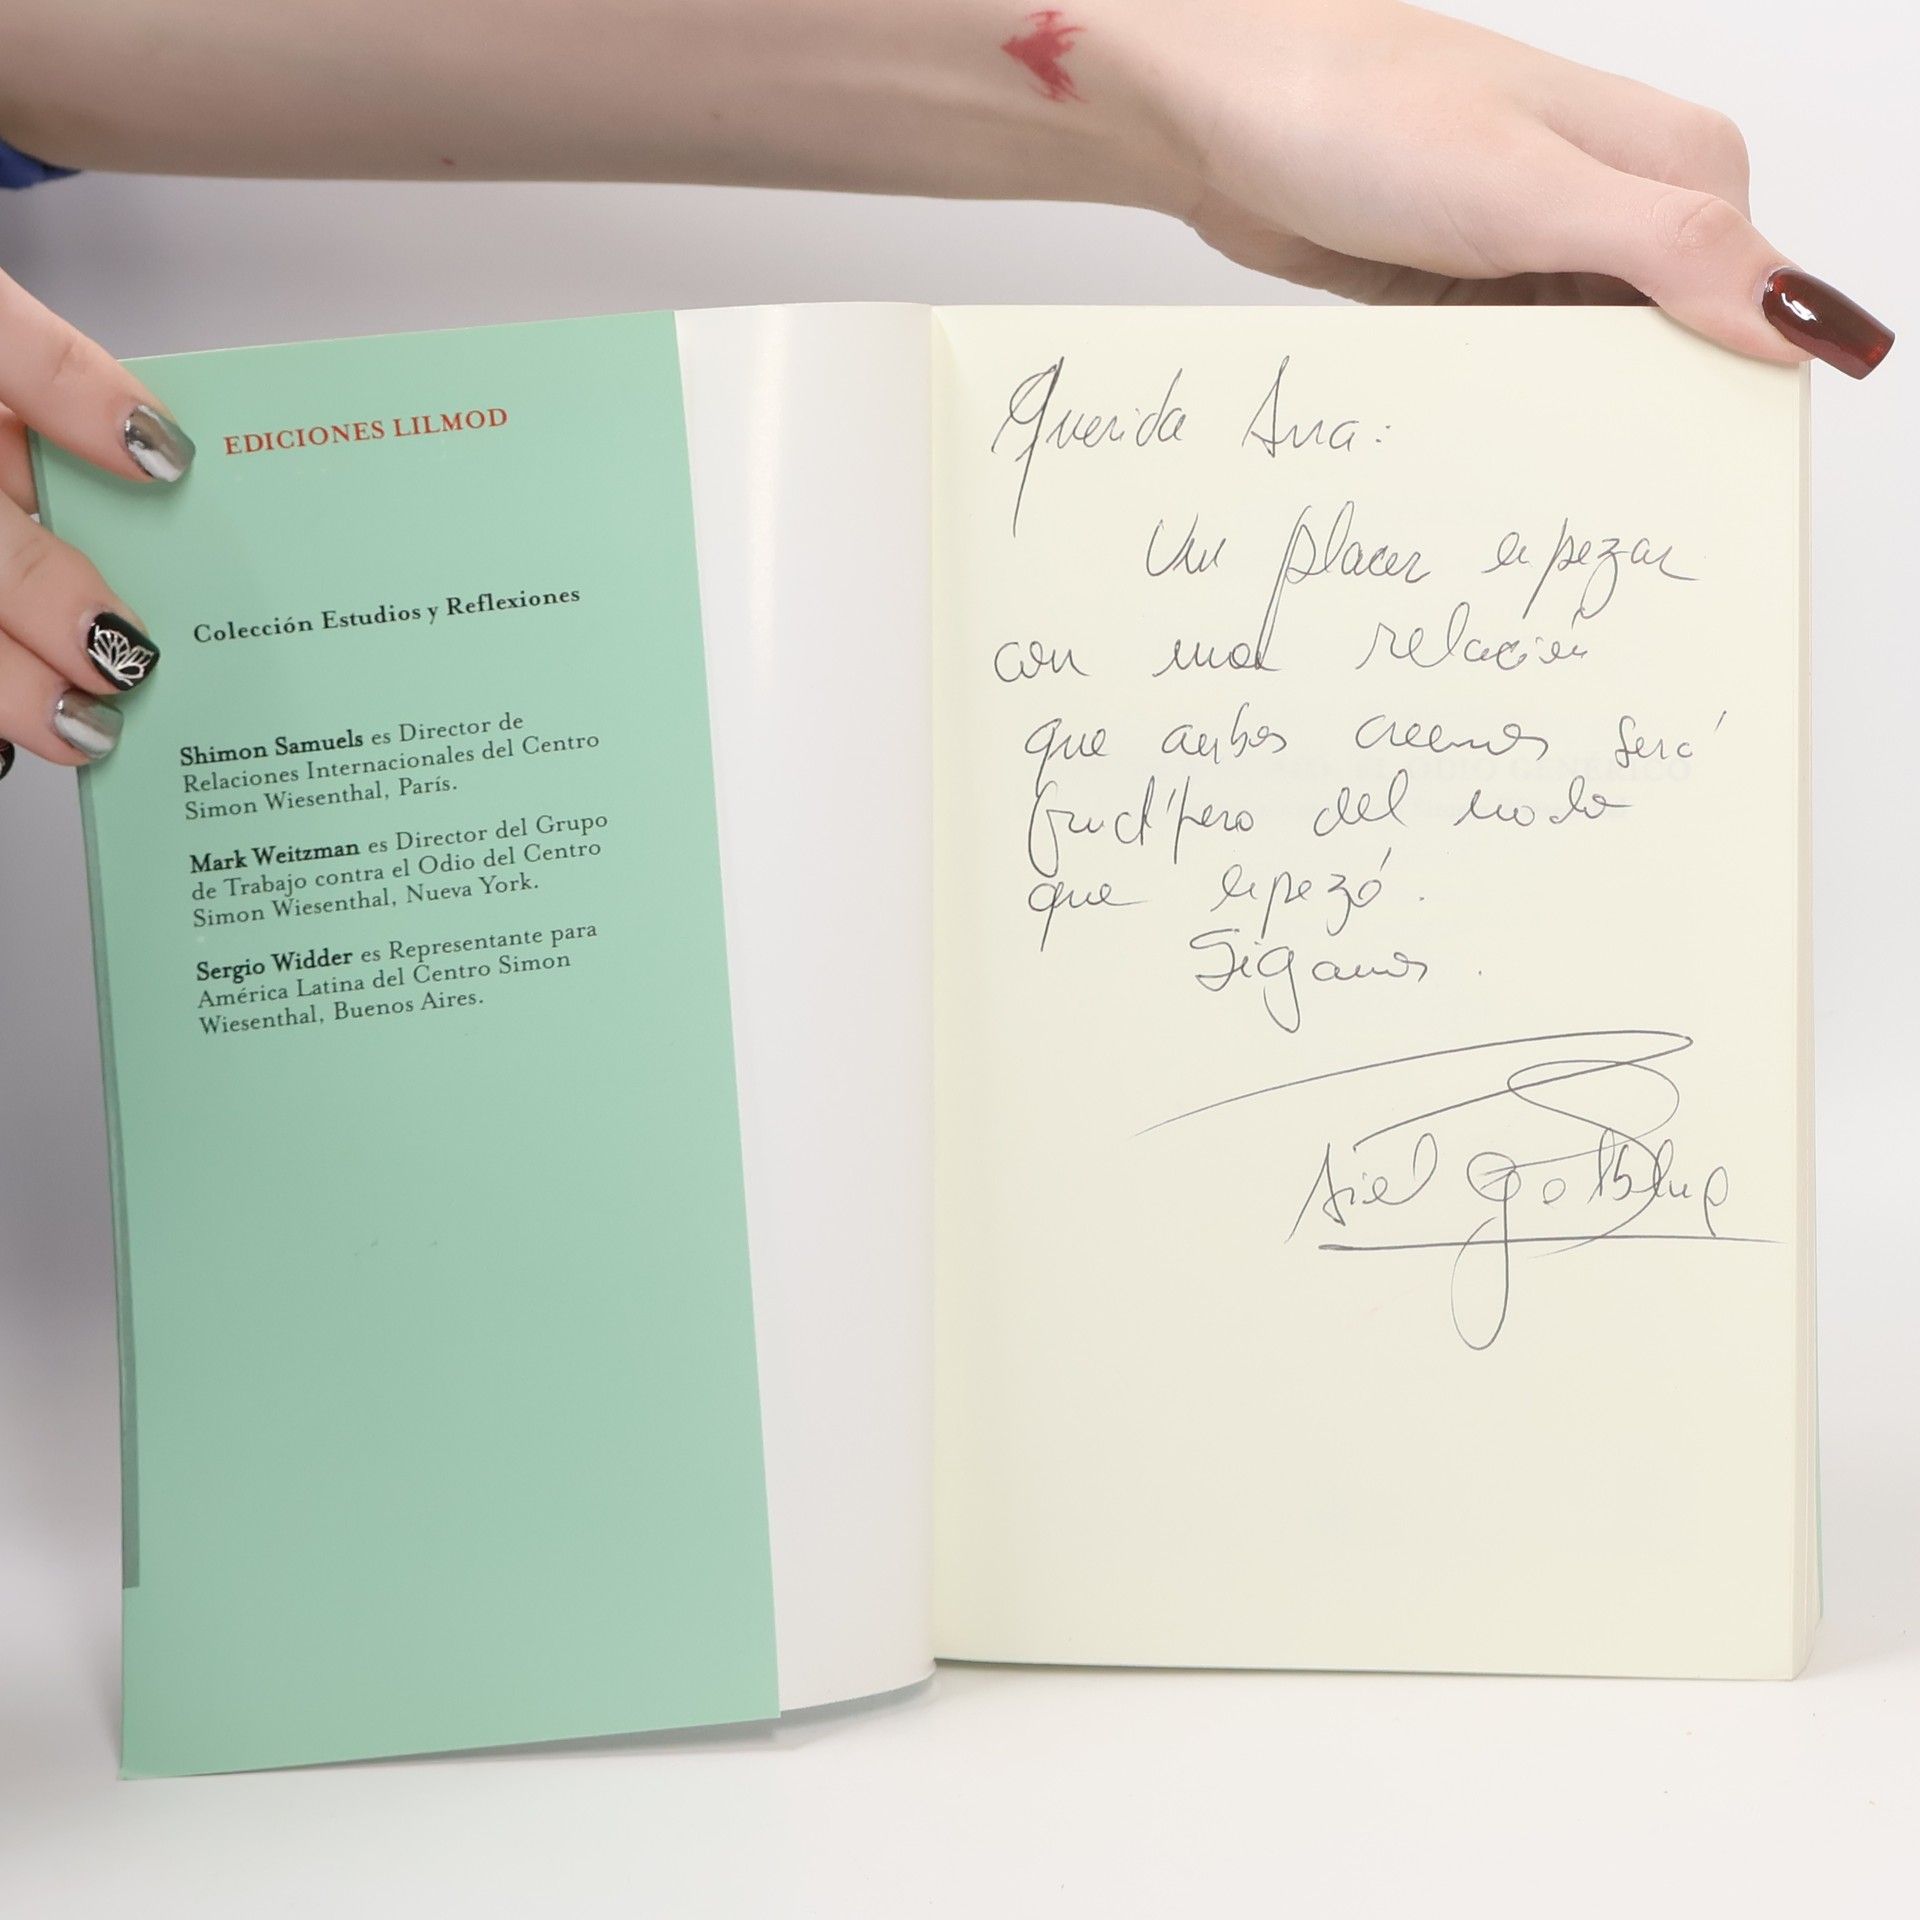 EDICIONES LILMOD
Colección Estudios y Reflexiones
Shimon Samuels es Director de
Relaciones Internacionales del Centro
Simon Wiesenthal, París.
Mark Weitzman es Director del Grupo
de Trabajo contra el Odio del Centro
Simon Wiesenthal, Nueva York.
Sergio Widder es Representante para
América Latina del Centro Simon
Wiesenthal, Buenos Aires.
Querida Ana:
Un placer empezar
con una relación
que ambos creemos será
fructífero del modo
que empezó.
Sigamos.
Ariel